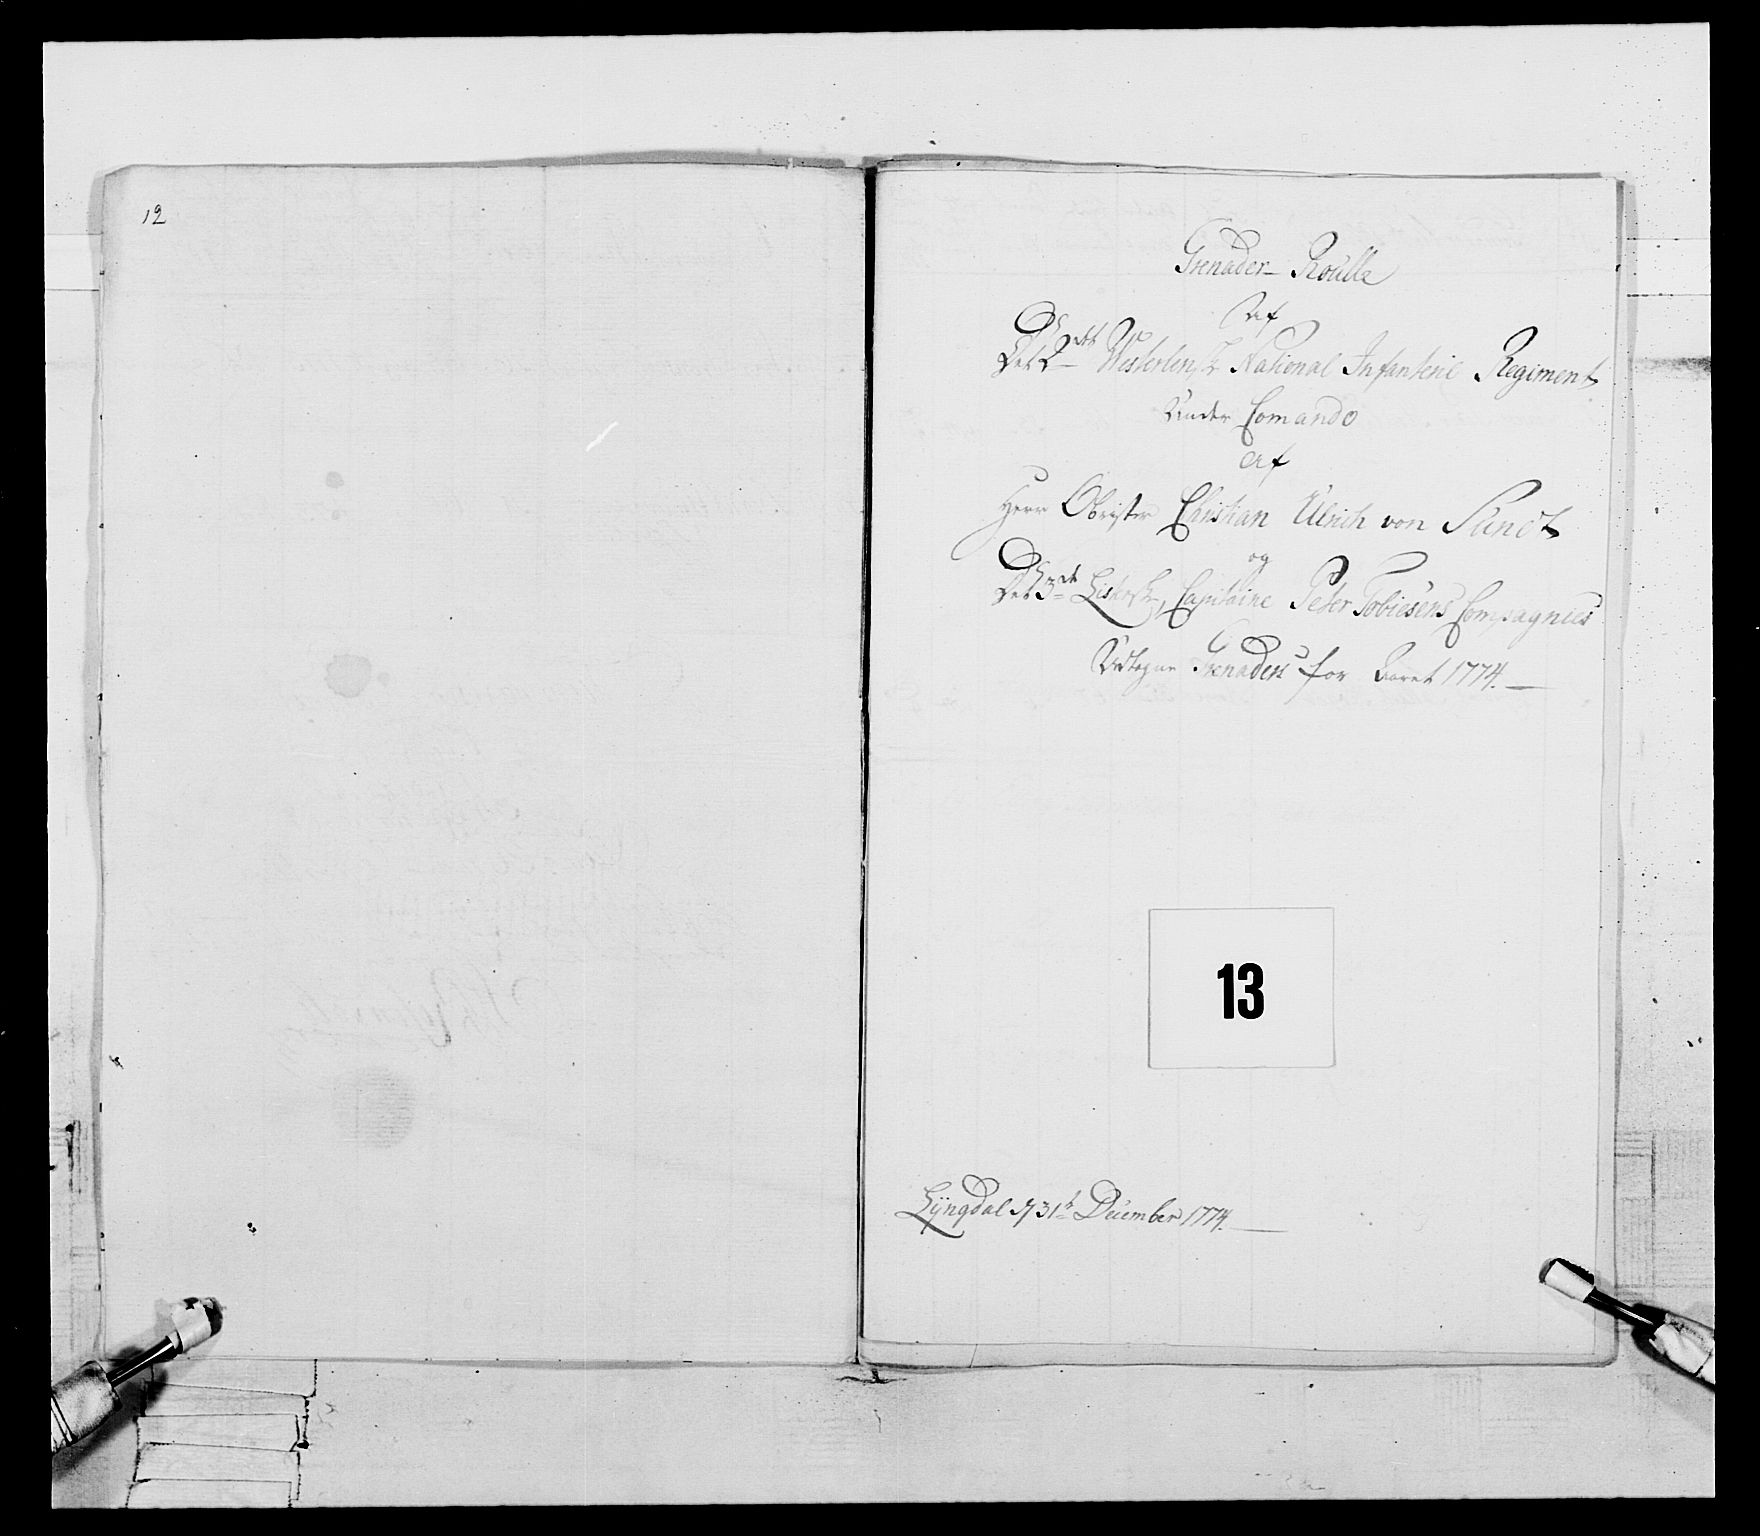 12
Grenader- Roulle
Af
Det 2det Westerlensk National Infanterie Regiment
Under Comando
Af
Herr Obrister Christian Ulrich von
og
Det 3de Listersk, Capitaine Peter Tobiesens Compagnies
Udtagne Grenaders for Aaret 1774.
13
Lyngdal d 31te December 1774.